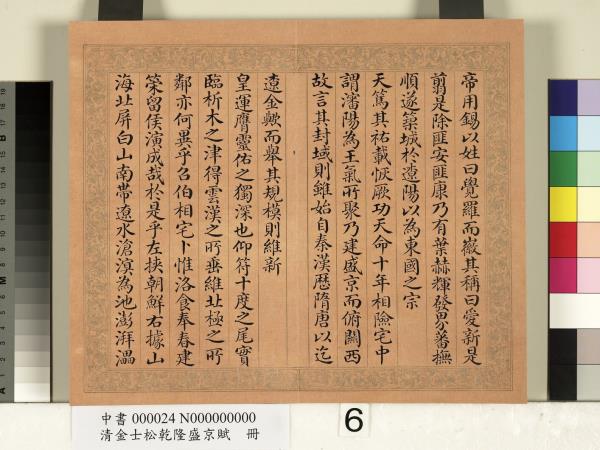 帝用錫以姓曰覺羅而徽其稱曰愛新是
翦是除匪安匪康乃有葉赫輝發界蕃撫
順遂築城於遼陽以為東國之宗
天篤其祜載恢厥功天命十年相險宅中
謂瀋陽為王氣所聚乃建盛京而俯關西
故言其封域則雖始自秦漢歷隋唐以迄
遼金歟而舉其規模則維新
皇運膺靈佑之獨深也仰符十度之尾實
臨析木之津得雲漢之所垂維北極之所
鄰亦何異乎召伯相宅卜惟洛食奉春建
策留侯演成哉於是乎左挾朝鮮右據山
海北屏白山南帶遼水滄溟為池澎湃溫
中書 000024 N000000000
清金士松乾隆盛京賦 冊
6